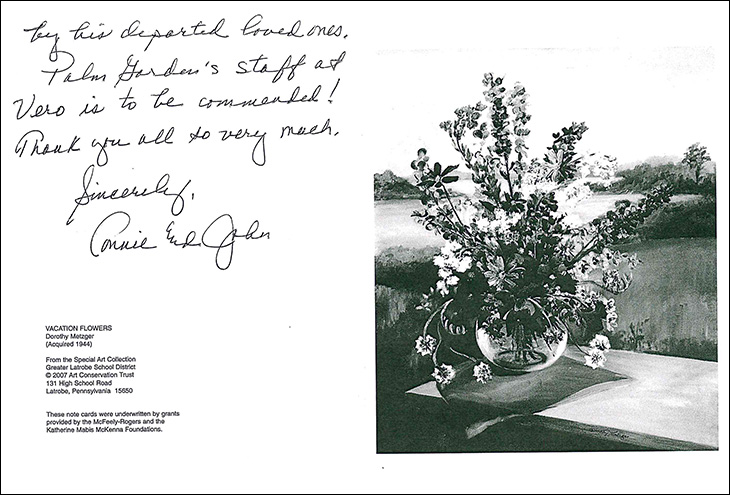 by his departed loved ones.
Palm Garden's staff at
Vero is to be commended!
Thank you all so very much.
Sincerely,
Connie and John
VACATION FLOWERS
Dorothy Metzger
(Acquired 1944)
From the Special Art Collection
Greater Latrobe School District
© 2007 Art Conservation Trust
131 High School Road
Latrobe, Pennsylvania 15650
These note cards were underwritten by grants
provided by the McFeely-Rogers and the
Katherine Mabis McKenna Foundations.